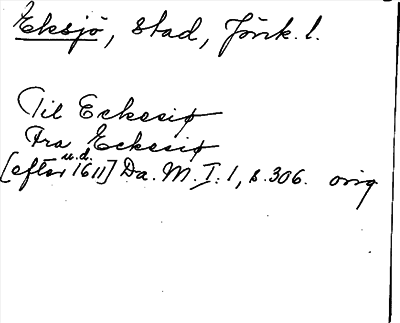 Eksjö, stad, Jönk. l.
Til Eckesiø
Fra Eckesiø
u.d.
[efter 1611] Da. M. I: 1, s. 306. orig